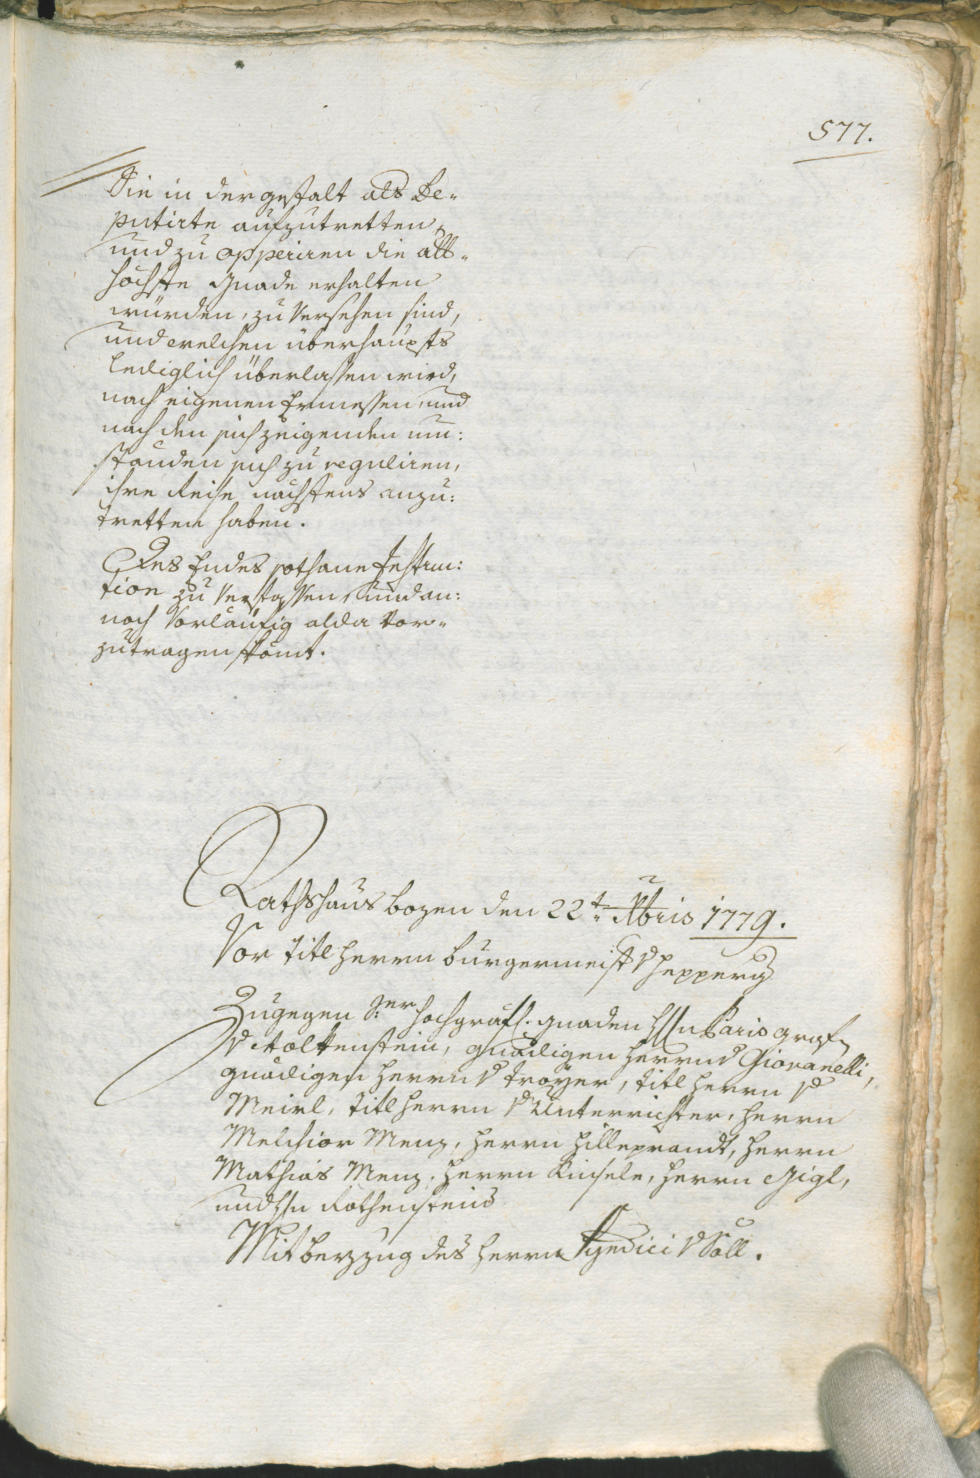 577.
Sie in der gestalt als De-
putirte aufzutretten,
und zu opperiren die all-
höchste Gnade erhalten
würden, zu Versehen sind,
und welchen überhaupts
lediglich überlassen wird,
nach eigenen Ermessen, und
nach den sich zeigenden um:
standen sich zu reguliren,
ihre Reise nächstens anzu:
tretten haben.
Des Endes sothane Instruc:
tion zu Verfassen, und an:
noch Vorläufig alda vor-
zutragen kömt.
Rathshaus bozen den 22t. Xbris 1779.
Vor titl Herrn Burgermeist v Hepperg
Zugegen Ser. hochgräfl. gnaden Hrn Paris Graf
v Wolkenstein, gnädigen Herrn v Giovanelli,
gnädigen Herrn v Troyer, titl Herrn v
Meirl, titl Herrn v Unterrichter, Herrn
Melchior Menz, Herrn Hilleprandt, Herrn
Mathias Menz, Herrn Kinsele, Herrn Gigl,
und Hrn Rothensteins
Mit beyzug des Herrn Syndici v Söll.